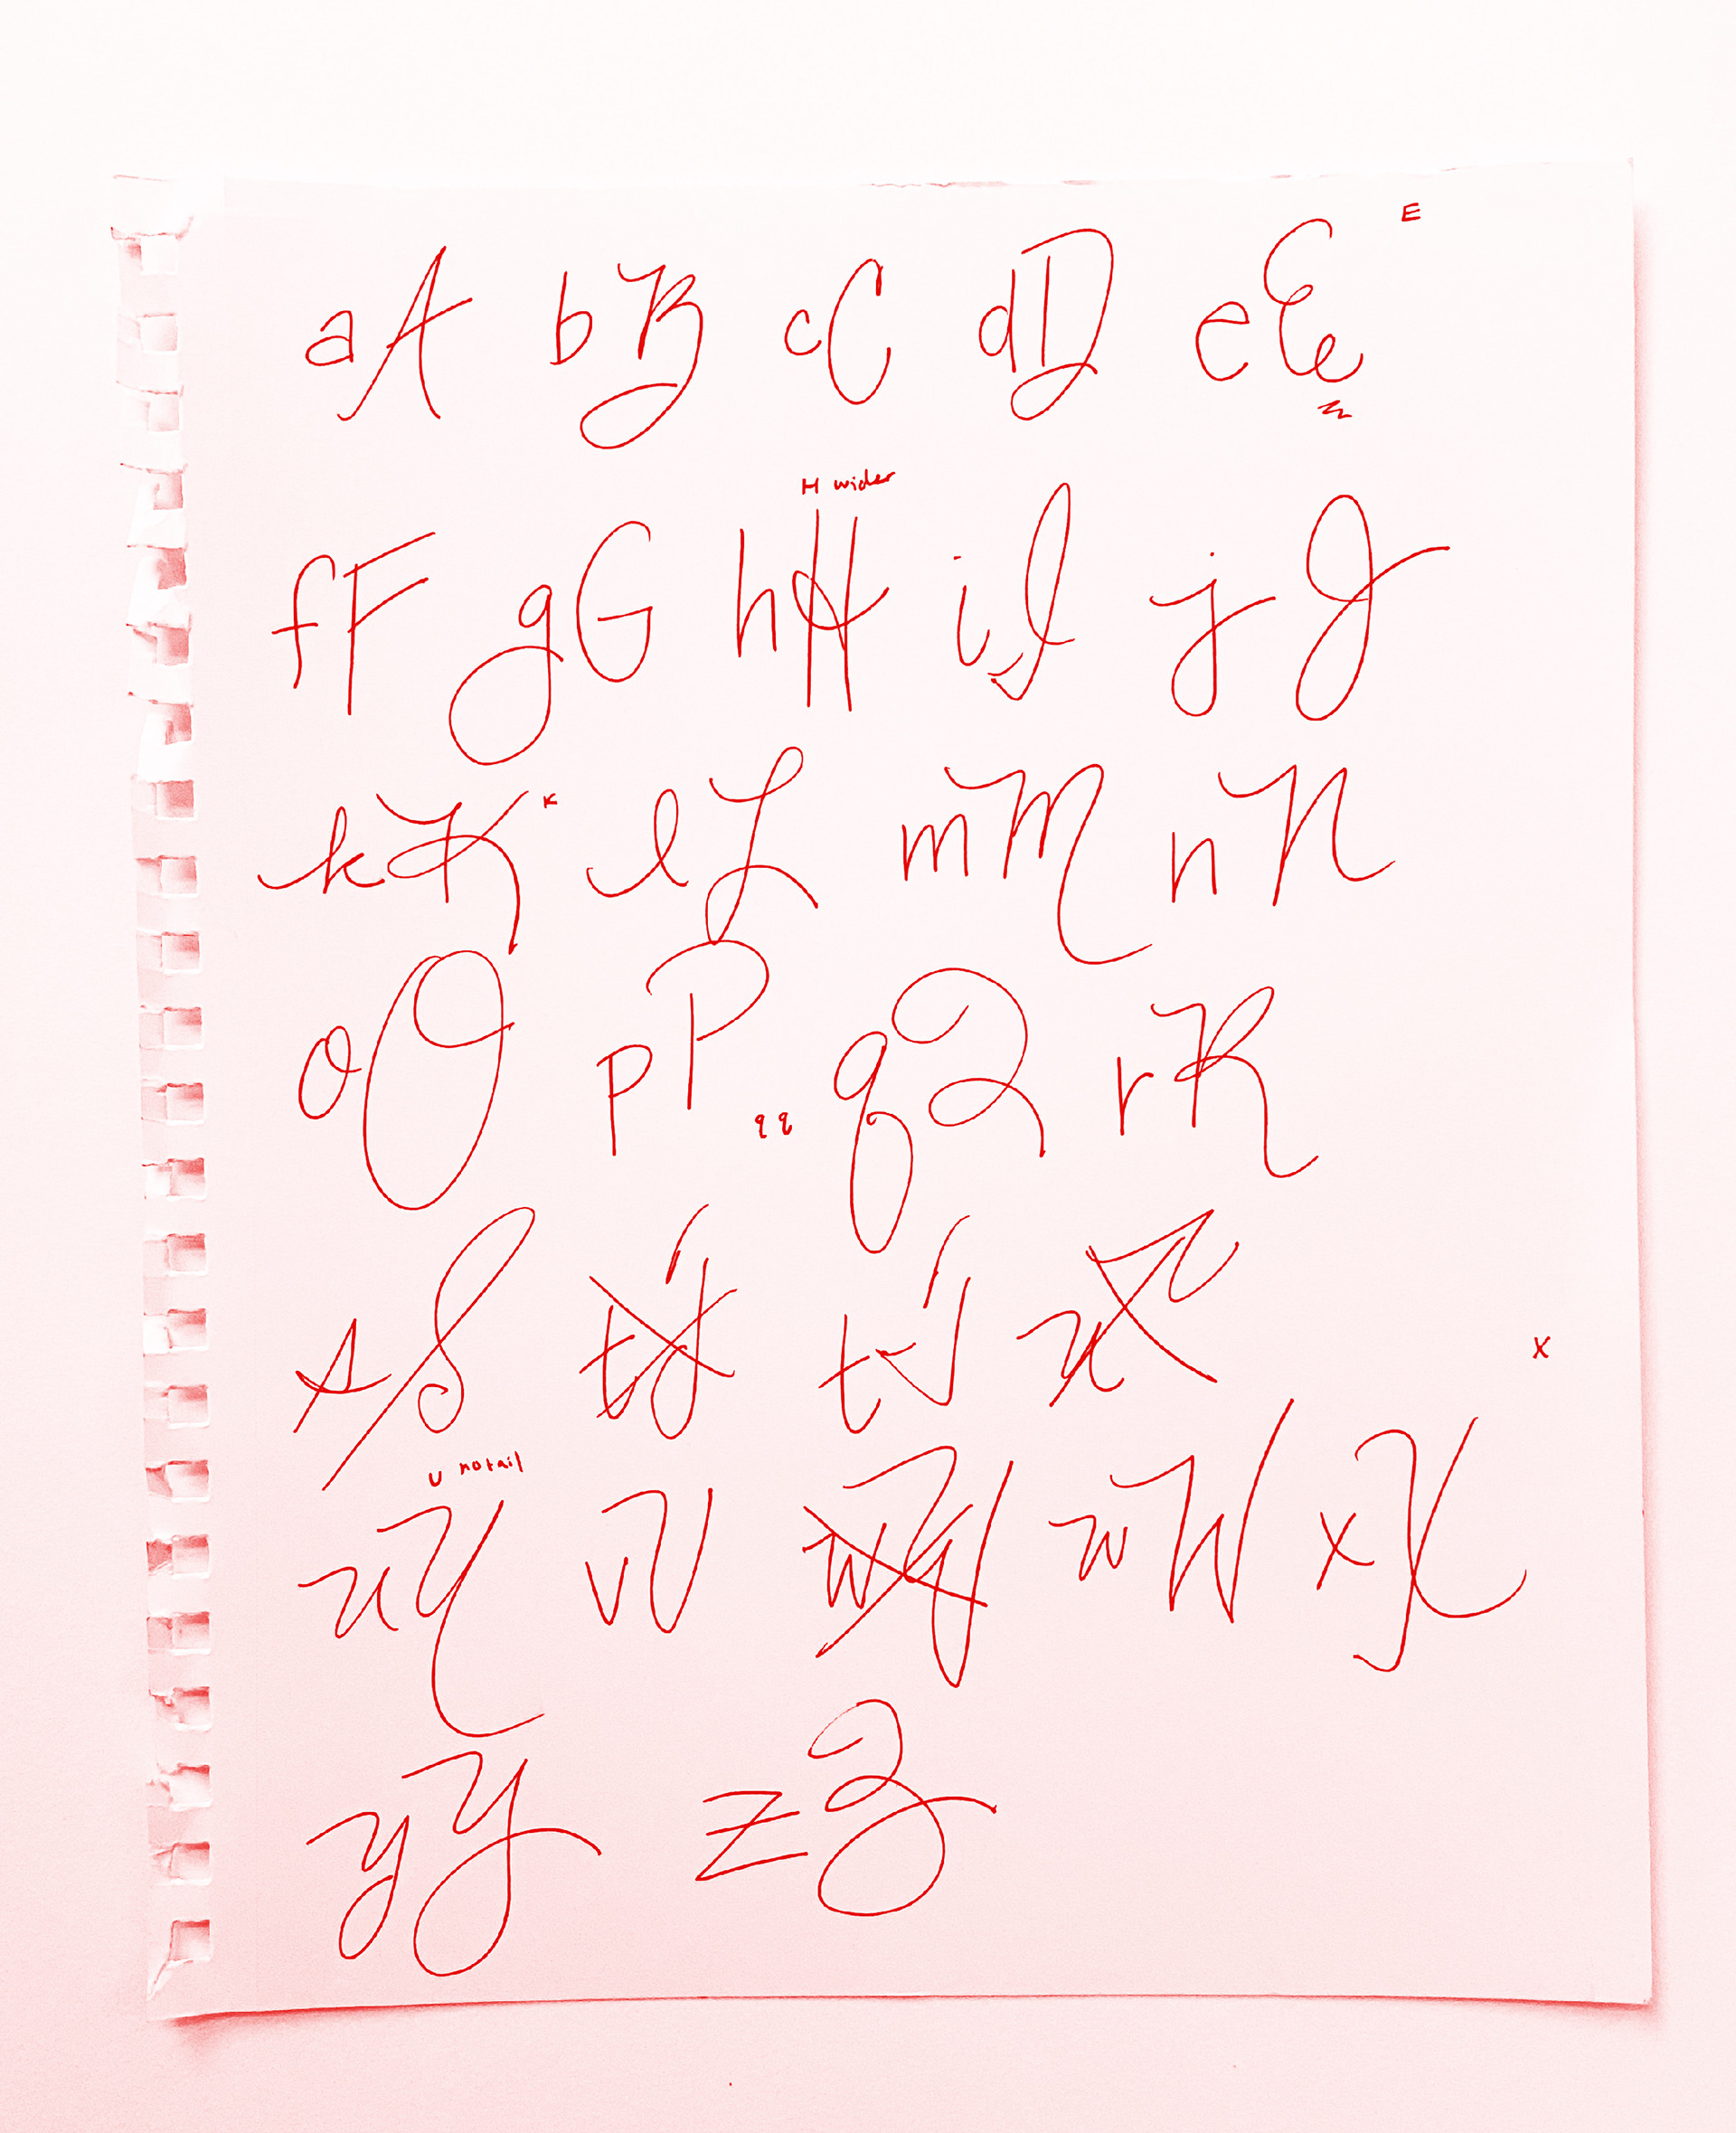 E
aA bB cC dD eE
H wider
fF gG hH iI jJ
kK K lL mM nN
oO pP qq qQ rR
sS tT tT uU
X
U no tail
uU vV wW wW xX
yY zZ